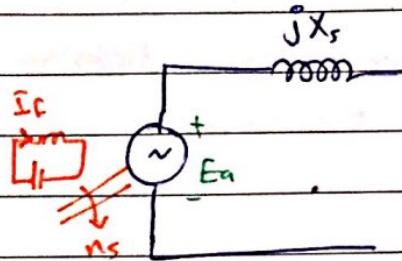 jXs
If
+
~
Ea
-
ns